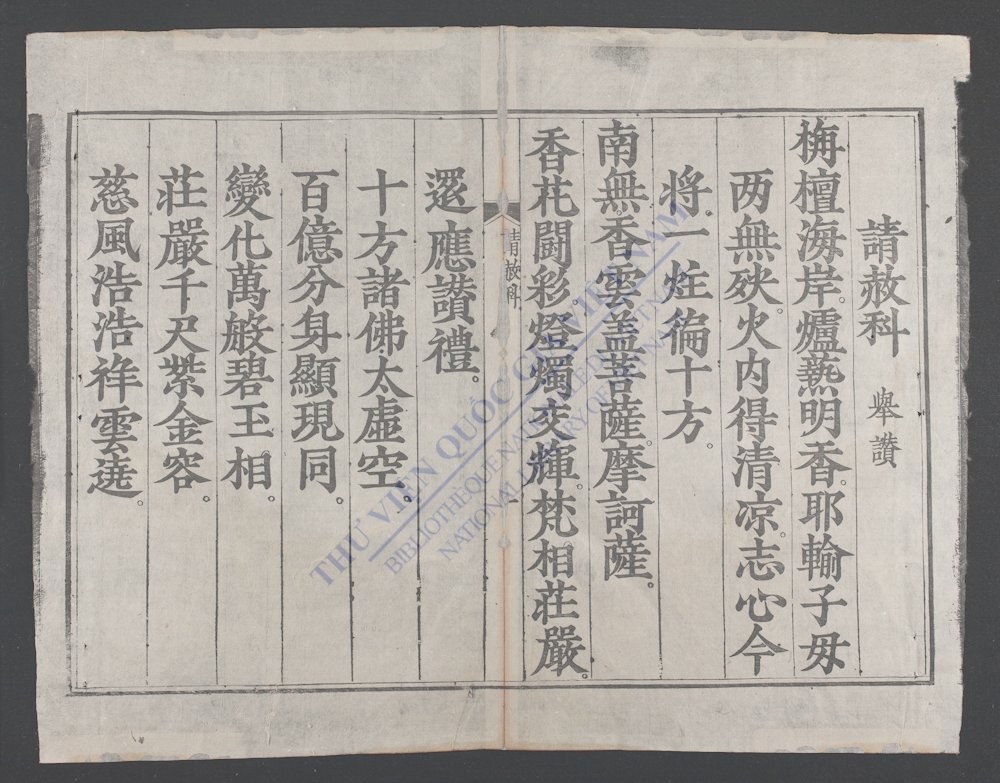 請赦科 舉讃
栴檀海岸。爐爇明香。耶輸子母
两無殃。火内得清凉。志心今
将一炷徧十方。
南無香雲盖菩薩。摩訶薩。
香花鬪彩。燈燭交輝。梵相莊嚴。
請赦科
一
還應讃禮。
十方諸佛太虛空。
百億分身顯現同。
變化萬般碧玉相。
莊嚴千尺紫金容。
慈風浩浩祥雲遶。
THƯ VIỆN QUỐC GIA VIỆT NAM
BIBLIOTHEQUE NATIONALE DU VIETNAM
NATIONAL LIBRARY OF VIETNAM